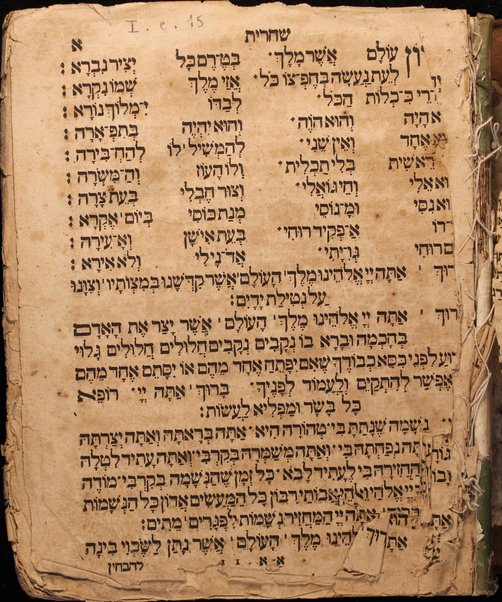 I. e. 15
שחרית
א
ון עולם אשר מלך בטרם כל יציר נברא :
לעת נעשה בחפצו כל אזי מלך שמו נקרא :
רי ככלות הכל לבדו ימלוך נורא :
היה והוא הוה והוא יהיה בתפארה :
אחד ואין שני להמשיל לו להחבירה :
ראשית בלי תכלית ולו העוז והמשרה :
וא אלי וחי גואלי וצור חבלי בעת צרה :
וא נסי ומנוסי מנת כוסי ביום אקרא :
דו אפקיד רוחי בעת אישן ואעירה :
ם רוחי גויתי אדני לי ולא אירא :
רוך אתה יי אלהינו מלך העולם אשר קדשנו במצותיו וצונו
על נטילת ידים :
רוך אתה יי אלהינו מלך העולם אשר יצר את האדם
בחכמה וברא בו נקבים נקבים חלולים חלולים גלוי
ע לפני כסא כבודך שאם יפתח אחד מהם או יסתם אחד מהם
אפשר להתקים ולעמוד לפניך ברוך אתה יי רופא
כל בשר ומפליא לעשות :
נשמה שנתת בי טהורה היא אתה בראתה ואתה יצרתה
נפחתה בי ואתה משמרה בקרבי ואתה עתיד לטלה
החזירה בי לעתיד לבא כל זמן שהנשמה בקרבי מודה
יי אלהי ואלהי אבותי רבון כל המעשים אדון כל הנשמות
ברוך אתה יי המחזיר נשמות לפגרים מתים :
אלהינו מלך העולם אשר נתן לשכוי בינה
להבחין